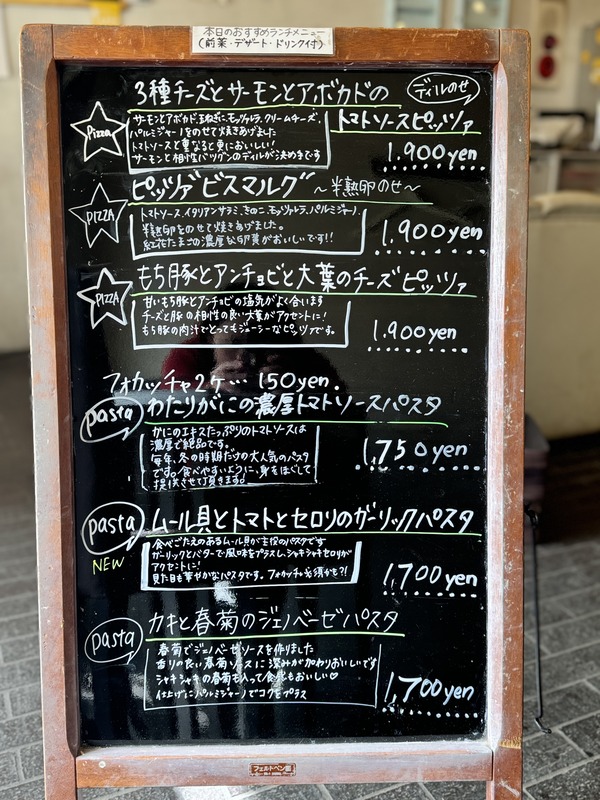 本日のおすすめランチメニュー
(前菜・デザート・ドリンク付)
3種チーズとサーモンとアボカドの
ディルのせ
トマトソースピッツァ
pizza
サーモンとアボカド、玉ねぎに、モッツァレラ、クリームチーズ、
パルミジャーノをのせて焼きあげました
トマトソースと重なると更においしい!
サーモンと相性バツグンのディルが決め手です
1.900yen
ピッツァ"ビスマルク"～半熟卵のせ～
PIZZA
トマトソース、イタリアンサラミ、きのこ、モッツァレラ、パルミジャーノ、
半熟卵をのせて焼きあげました。
紅花たまごの濃厚な卵黄がおいしいです!!
1,900yen
もち豚とアンチョビと大葉のチーズピッツァ
PIZZA
甘いもち豚とアンチョビの塩気がよく合います
チーズと豚の相性の良い大葉がアクセントに!
もち豚の肉汁でとってもジューシーなピッツァです。
1,900yen
フォカッチャ2ケ… 150yen.
pasta
わたりがにの濃厚トマトソースパスタ
かにのエキスたっぷりのトマトソースは
濃厚で絶品です。
毎年、冬の時期だけの大人気のパスタ
です。食べやすいように、身をほぐして
提供させて頂きます。
1,750yen
pasta
NEW
ムール貝とトマトとセロリのガーリックパスタ
食べごたえのあるムール貝が主役のパスタです
ガーリックとバターで風味をプラスし、シャキシャキセロリが
アクセントに!
見た目も華やかなパスタです。フォカッチャ必須かも?!
1,700yen
pasta
カキと春菊のジェノベーゼパスタ
春菊でジェノベーゼソースを作りました
香りの良い春菊ソースに深みが加わりおいしいです
シャキシャキの春菊も入って食感もおいしい♡
仕上げにパルミジャーノでコクをプラス
1,700yen
フェルトペン用